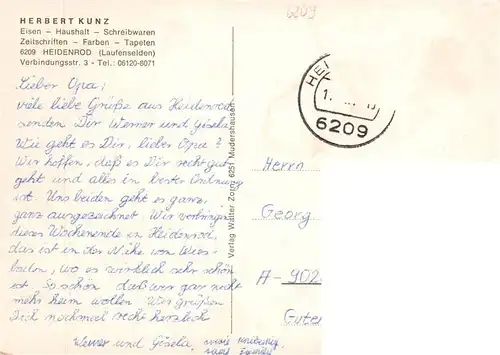 6209
HERBERT KUNZ
Eisen – Haushalt – Schreibwaren
Zeitschriften – Farben – Tapeten
6209 HEIDENROD (Laufenselden)
Verbindungsstr. 3 - Tel.: 06120-8071
HEI
1.
6209
Lieber Opa,
viele liebe Grüße aus Heidenrod
senden Dir Werner und Gisela.
Wie geht es Dir, lieber Opa?
Wir hoffen, daß es Dir recht gut
geht und alles in bester Ordnung
ist. Uns beiden geht es ganz,
ganz ausgezeichnet. Wir verbringen
dieses Wochenende in Heidenrod,
das ist in der Nähe von Wies-
baden, wo es wirklich sehr schön
ist. So schön daß wir gar nicht
mehr heim wollen. Wir grüßen
Dich nochmal recht herzlich
Werner und Gisela,
Verlag Walter Zorn, 6251 Mudershausen
Herrn
Georg
A-902
Guten